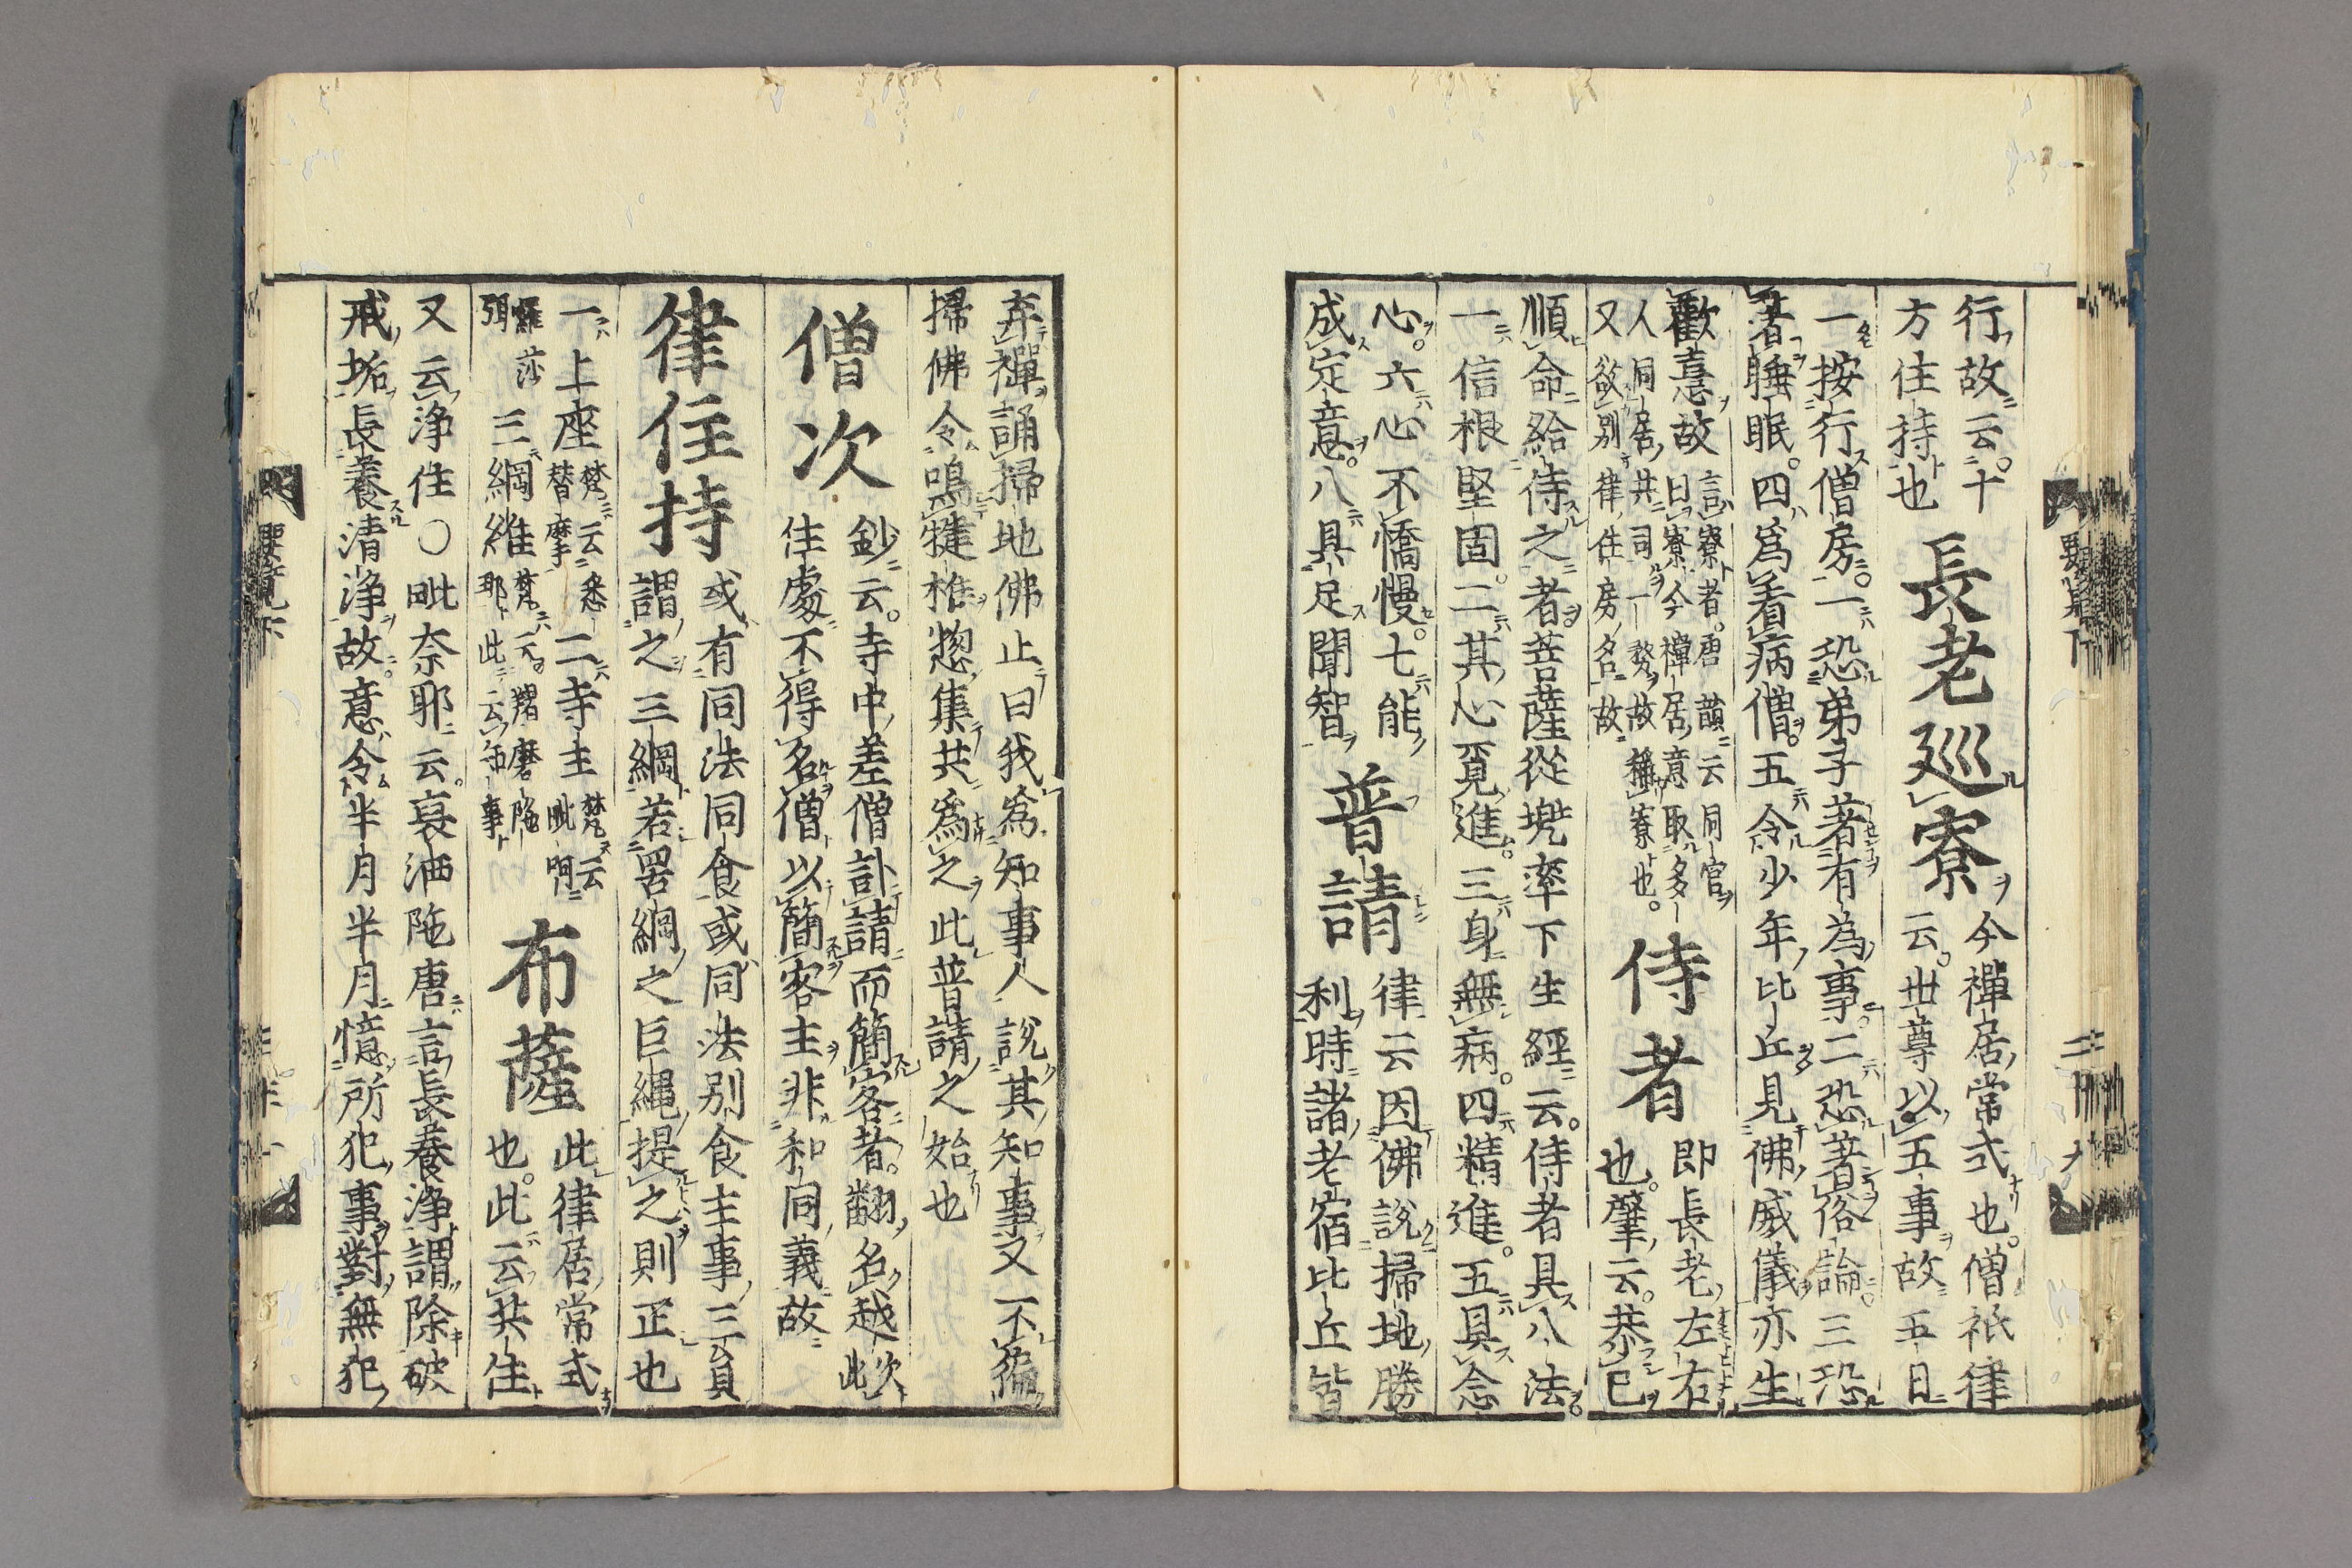 要覽下
行故云。十
方住持也
長老廵寮
今禪居常式也。僧祇律
云。世尊以五事故五日
一按行僧房。一恐弟子著有為事。二恐著俗論。三恐
著睡眠。四為看病僧。五令少年比丘見佛威儀亦生
歡喜故
言寮者。唐韻云同官
曰寮今禪居意取多
人同居共司一務故稱寮也。
又欲別律住房名故
侍者
即長老左右
也。肇云。恭己
順命給侍之者。菩薩從兜率下生經云。侍者具八法。
一信根堅固。二其心覓進。三身無病。四精進。五具念
心。六心不憍慢。七能
成定意。八具足聞智
普請
律云因佛說掃地勝
利時諸老宿比丘皆
弃禪誦掃地佛止曰我為知事人說其知事又不徧
掃佛令鳴犍椎惣集共為之此普請之始也
僧次
鈔云。寺中差僧訃請而簡客者。翻名越次此
住處不得名僧以簡客主非和同義故
律住持
或有同法同食或同法別食主事三員
謂之三綱若罟綱之巨繩提之則正也
一上座
梵云悉
替摩
二寺主
梵云
毗呵
羅莎
弭
三綱維
梵云。羯磨陁
耶此云知事
布薩
此律居常式
也。此云共住
又云淨住〇毗奈耶云。裒洒陁唐言長養淨謂除破
戒垢長養清淨故。意令半月半月憶所犯事對無犯
要覽下